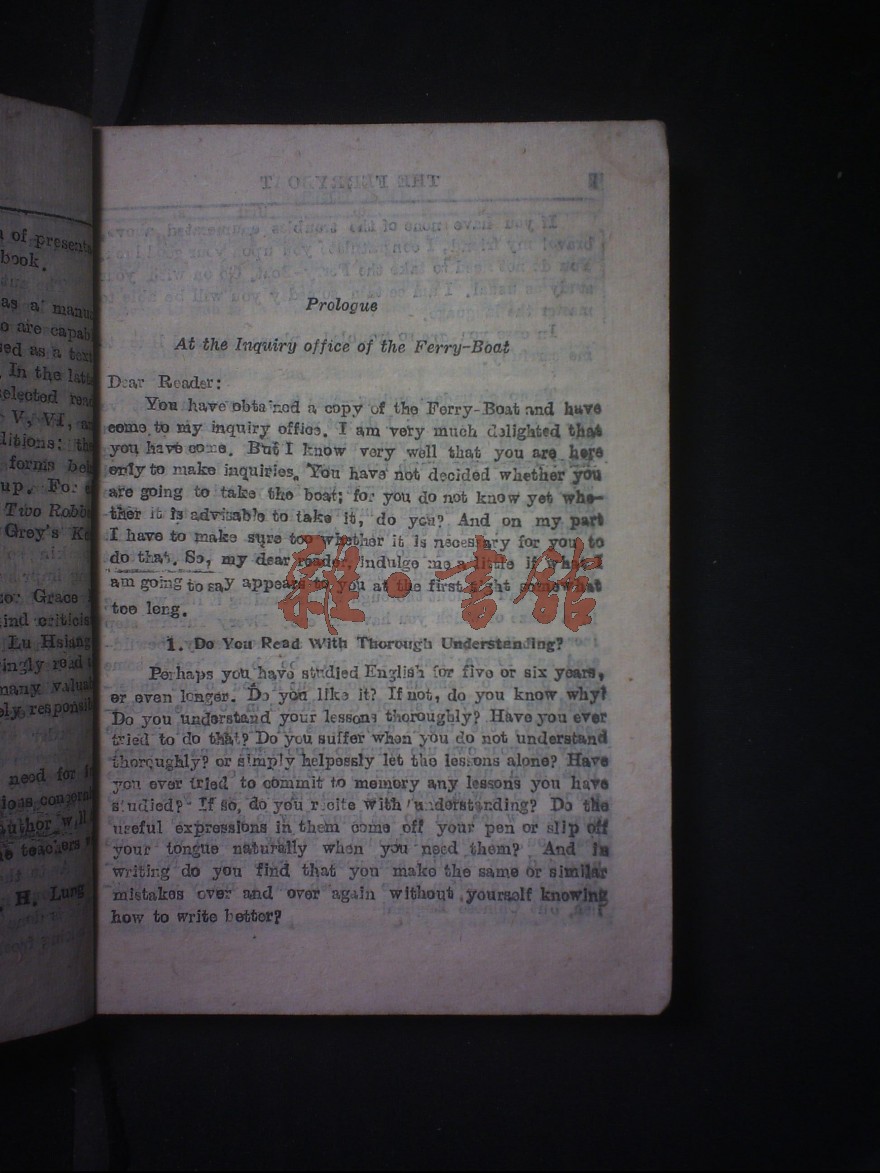 of presents
book.
as a manu
o are capab
ed as a text
In the latte
selected read
V, VI, a
ditions: the
forms bel
up. For
Two Robb
Grey's
Grace
ind criticis
Lu Hsiang
ingly read
many valua
ly, responsi
need for
ious concern
author will
e teachers
H. Lung
THE FERRY-BOAT
Prologue
At the Inquiry office of the Ferry-Boat
Dear Reader:
You have obtained a copy of the Ferry-Boat and have
come to my inquiry office. I am very much delighted that
you have come. But I know very well that you are here
only to make inquiries. You have not decided whether you
are going to take the boat; for you do not know yet whe-
ther it is advisable to take it, do you? And on my part
I have to make sure too whether it is necessary for you to
do that. So, my dear reader, indulge me a little if what I
am going to say appears to you at the first sight somewhat
too long.
1. Do You Read With Thorough Understanding?
Perhaps you have studied English for five or six years,
or even longer. Do you like it? If not, do you know why?
Do you understand your lessons thoroughly? Have you ever
tried to do that? Do you suffer when you do not understand
thoroughly? or simply helpessly let the lessons alone? Have
you ever tried to commit to memory any lessons you have
studied? If so, do you recite with understanding? Do the
useful expressions in them come off your pen or slip off
your tongue naturally when you need them? And in
writing do you find that you make the same or similar
mistakes over and over again without yourself knowing
how to write better?
雜·書館